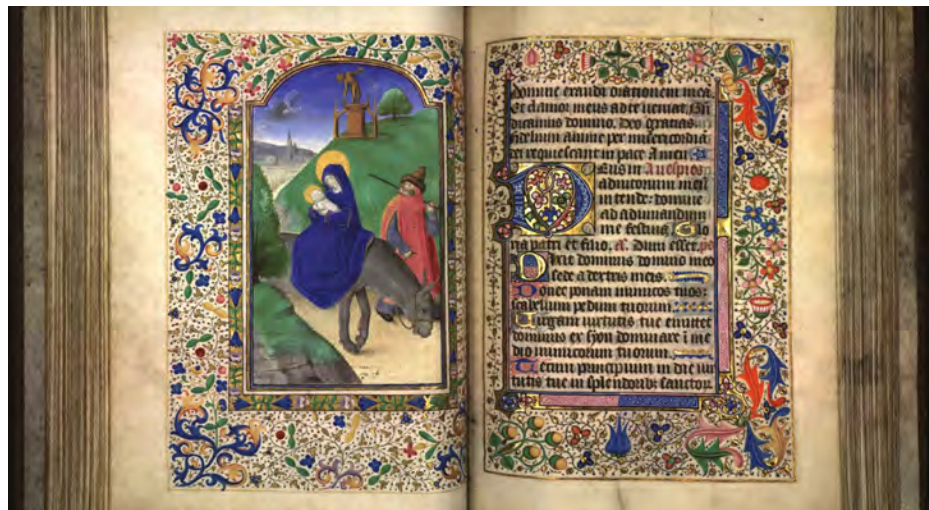 Domine exaudi orationem mea
Et clamor meus ad te veniat
dicamus domino. Deo gratias
fidelium anime per misericordia
dei requiescant in pace Amen
Deus in Ad vespͤs
adiutorium meu
intende: domine
ad adiuuandum
me festina. Glo
ria patri et filio. Dum esset
Dixit dominus domino meo
sede a dextris meis.
Donec ponam inimicos tuos:
scabellum pedum tuorum.
Uirgam uirtutis tue emittet
dominus ex syon dominare i me
dio inimicorum tuorum.
Tecum principium in die uir
tutis tue in splendorib; sanctor